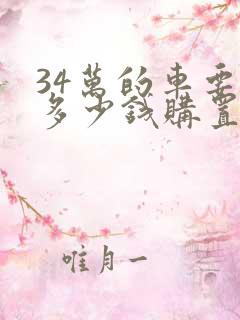 34萬的車要
多少錢購置
唯月一